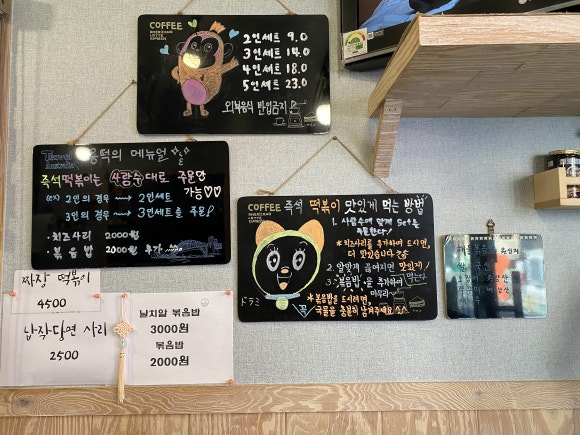 COFFEE
AMERICANO
LATTE
ESPRESSO
2인세트 9.0
3인세트 14.0
4인세트 18.0
5인세트 23.0
외부음식 반입금지
떡의 메뉴얼
즉석떡볶이는 사람수대로 주문만
가능♡♡
(ex) 2인의 경우 → 2인세트
3인의 경우 → 3인세트 을 주문
·치즈사리 2000원
·볶음밥 2000원 추가
COFFEE
AMERICANO
LATTE
ESPRESSO
즉석 떡볶이 맛있게 먹는 방법
1. 사람수에 맞게 Set를
주문한다!
*치즈사리를 추가하여 드시면,
더 맛있습니다
2. 알맞게 끓여지면 맛있게
먹는다
3. 볶음밥을 추가하여
마무리
*볶음밥을 드시려면,
꼭 국물을 충분히 남겨주세요
ドラミ
짜장 떡볶이
4500
납작당면 사리
2500
날치알 볶음밥
3000원
볶음밥
2000원